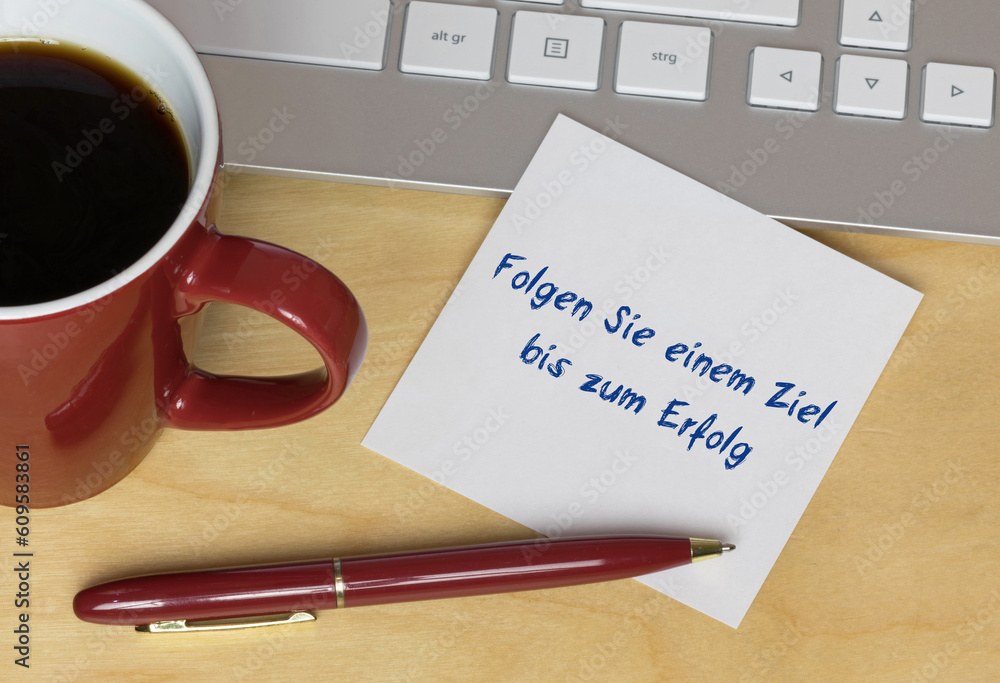 alt gr
strg
Folgen Sie einem Ziel
bis zum Erfolg
Adobe Stock | #609583861